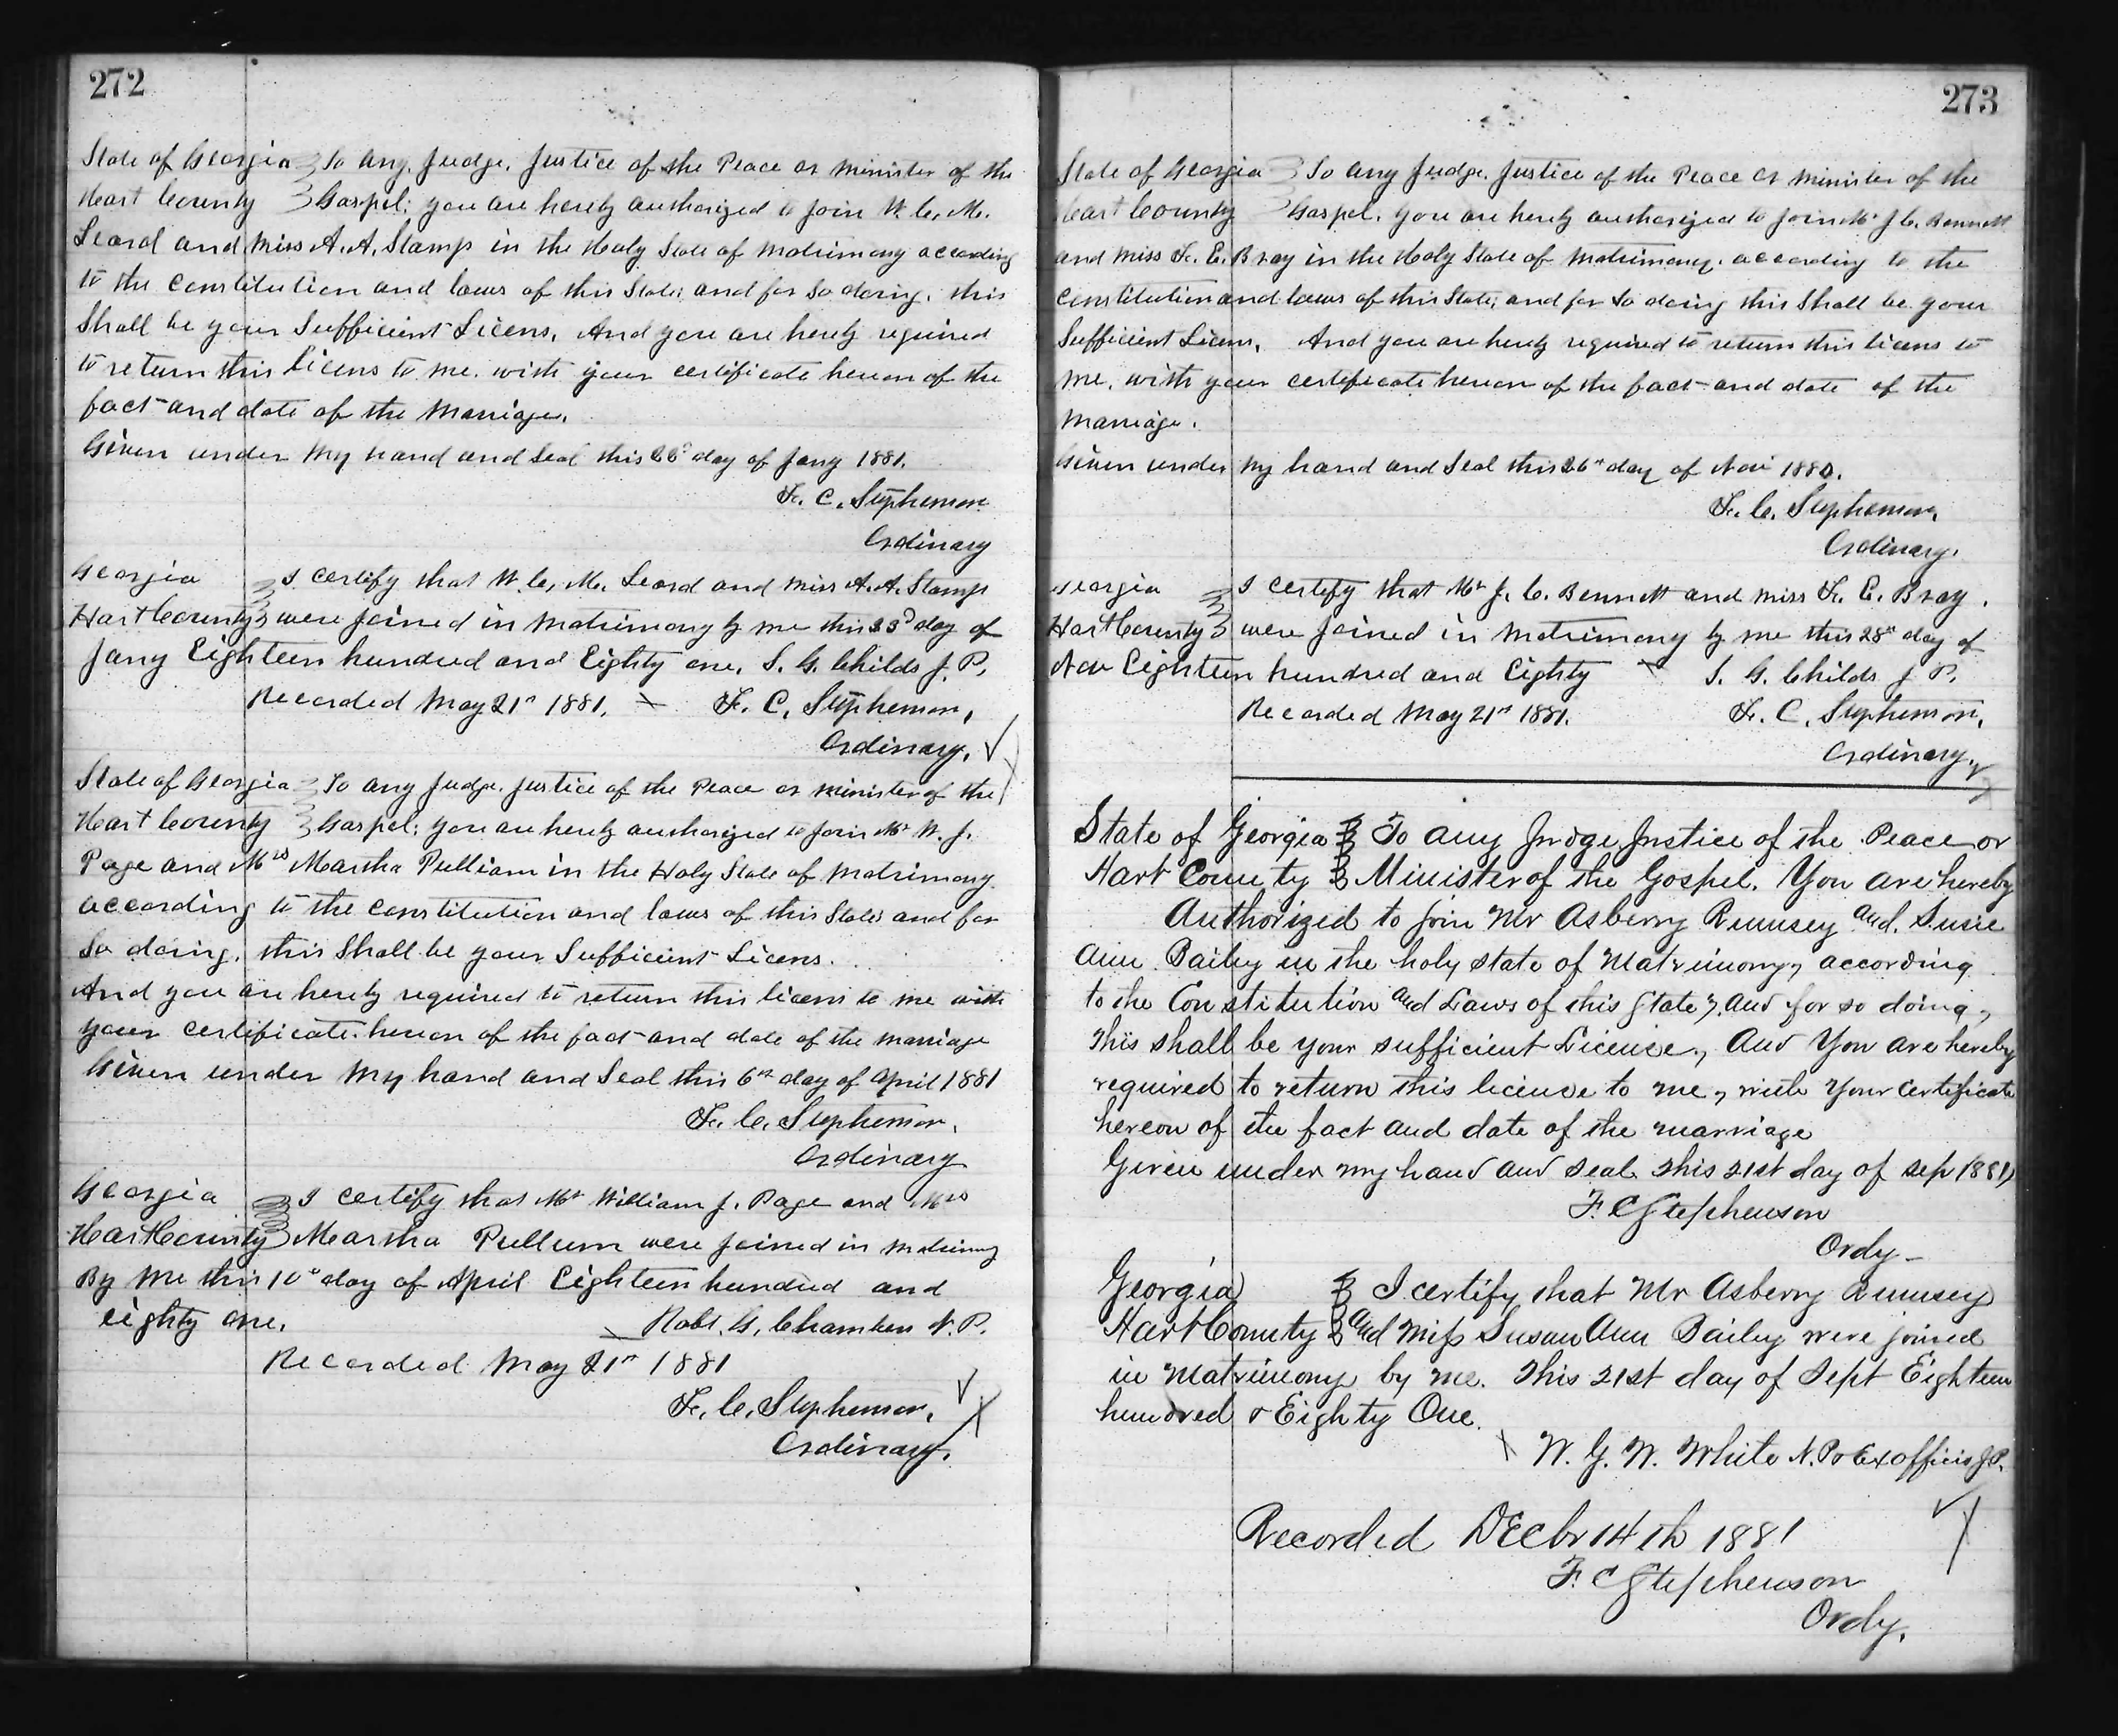 272
State of Georgia To any, Judge, Justice of the Peace or minister of the
Hart County Gospel; you are hereby authorized to join W. C. M.
Seard and Miss A. A. Stamp in the Holy State of matrimony according
to the constitution and laws of this State; and for so doing, this
Shall be your Sufficient Licens, And you are hereby required
to return this licens to me, with your certificate hereon of the
fact and date of the Marriage.
Given under my hand and Seal this day of Jany 1881.
F. C. Stephenson
Ordinary
Georgia I certify that W. C. M. Seard and Miss A. A. Stamps
Hart County were joined in matrimony by me this 23d day of
Jany Eighteen hundred and Eighty one, S. G. Childs J. P.
Recorded May 21st 1881. F. C. Stephenson,
Ordinary,
State of Georgia To any Judge, Justice of the Peace or minister of the
Hart County Gospel; you are hereby authorized to join Mr W. J.
Page and Mrs Martha Pulliam in the Holy State of matrimony
according to the constitution and laws of this State; and for
So doing, this Shall be your Sufficient Licens.
And you are hereby required to return this licens to me with
your certificate hereon of the fact and date of the marriage
Given under my hand and Seal this 6th day of April 1881
F. C. Stephenson,
Ordinary
Georgia I certify that Mr William J. Page and Mrs
Hart County Martha Pullum were joined in matrimony
By me this 10th day of April Eighteen hundred and
eighty one. Robt. G. Chamlee N. P.
Recorded May 21st 1881
F. C. Stephenson,
Ordinary,
273
State of Georgia To any Judge, Justice of the Peace or minister of the
Hart County Gospel, you are hereby authorized to join Mr J. C. Bennett
and Miss F. E. Bray in the Holy State of matrimony, according to the
constitution and laws of this State; and for so doing this Shall be your
Sufficient Licens, And you are hereby required to return this licens to
me, with your certificate hereon of the fact and date of the
marriage.
Given under my hand and Seal this 26th day of Nov 1880.
F. C. Stephenson,
Ordinary.
Georgia I certify that Mr J. C. Bennett and Miss F. E. Bray
Hart County were joined in matrimony by me this 28th day of
Nov Eighteen hundred and Eighty S. G. Childs J P.
Recorded May 21st 1881. F. C. Stephenson,
Ordinary,
State of Georgia To any Judge Justice of the Peace or
Hart County Minister of the Gospel. You are hereby
Authorized to join Mr Asberry Rumsey and Susie
Ann Bailey in the holy state of Matrimony, according
to the Constitution and Laws of this State, and for so doing,
this shall be your sufficient License, and You are hereby
required to return this license to me, with Your certificate
hereon of the fact and date of the marriage
Given under my hand and seal this 21st day of Sep 1881,
F. C Stephenson
Ordy-
Georgia I certify that Mr Asberry Rumsey
Hart County and Miss Susan Ann Bailey were joined
in Matrimony by me. This 21st day of Sept Eighteen
hundred & Eighty One.
W. G. W. White N. P & Ex officio J.P.
Recorded DEcbr 14th 1881
F. C Stephenson
Ordy.